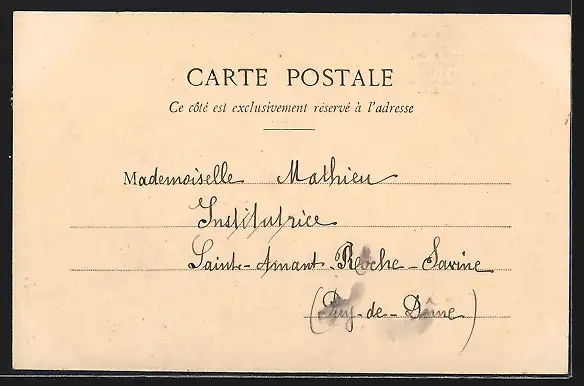 CARTE POSTALE
Ce côté est exclusivement réservé à l'adresse
Mademoiselle Mathieu
Institutrice
Saint-Amant-Roche-Savine
(Puy-de-Dôme)